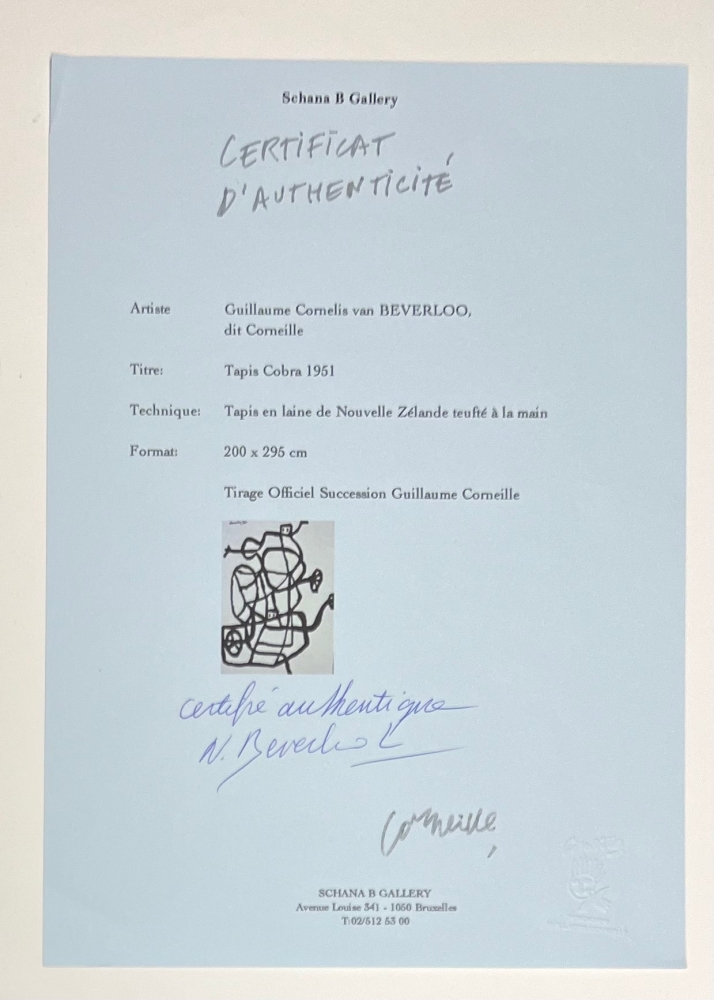 Schana B Gallery
CERTIFICAT
D'AUTHENTICITÉ
Artiste Guillaume Cornelis van BEVERLOO,
dit Corneille
Titre: Tapis Cobra 1951
Technique: Tapis en laine de Nouvelle Zélande teufté à la main
Format: 200 x 295 cm
Tirage Officiel Succession Guillaume Corneille
certifié authentique
N. Beverloo
Corneille
SCHANA B GALLERY
Avenue Louise 341 - 1050 Bruxelles
T:02/512 53 00